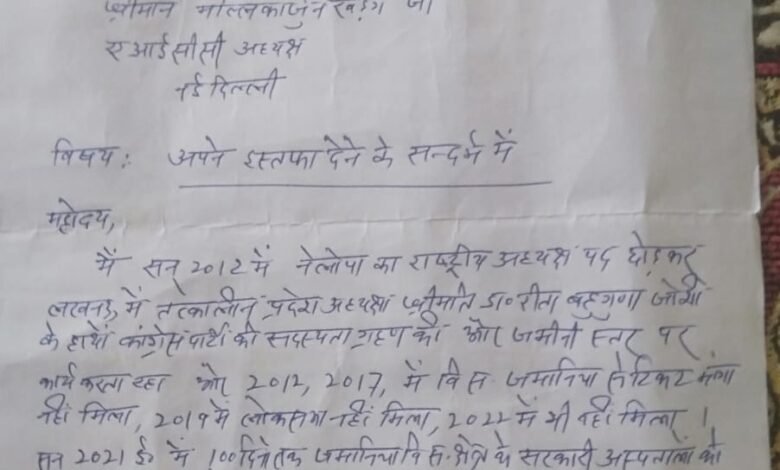 श्रीमान मल्लिकार्जुन खड़गे जी
ए आई सी सी अध्यक्ष
नई दिल्ली
विषय: अपने इस्तफा देने के सन्दर्भ में
महोदय,
मैं सन 2012 में नेलोपा का राष्ट्रीय अध्यक्ष पद छोड़कर
लखनऊ, में तत्कालीन प्रदेश अध्यक्षा श्रीमति डा० रीता बहुगुणा जोशी
के हाथों कांग्रेस पार्टी की सदस्यता ग्रहण की और जमीनी स्तर पर
कार्य करता रहा और 2012, 2017, में वि स. जमानिया से टिकट मांगा
नहीं मिला, 2019 में लोकसभा नहीं मिला, 2022 में भी नहीं मिला।
सन 2021 ई० में 100 दिनों तक जमानिया वि स. क्षेत्र के सरकारी अस्पतालों को